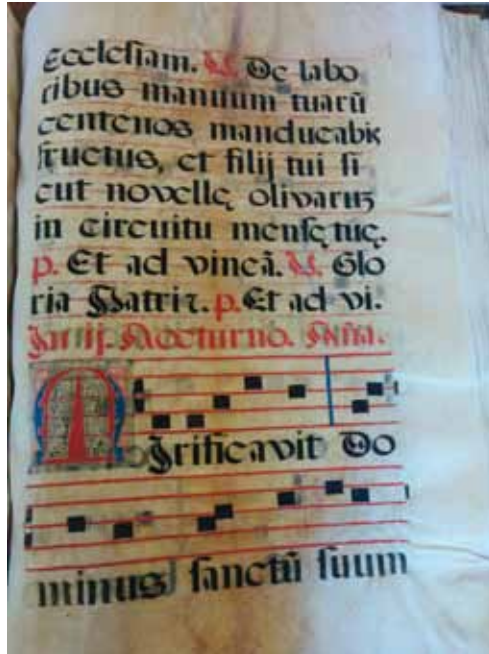 Ecclesiam. V. De labo
ribus manuum tuarū
centenos manducabis
fructus, et filij tui si
cut novellę olivarum
in circuitu mensę tuę.
p. Et ad vincā. V. Glo
ria Patri ꝛ. p. Et ad vi.
In ij. Nocturno. Aña.
Mirificavit Do
minus sanctū suum